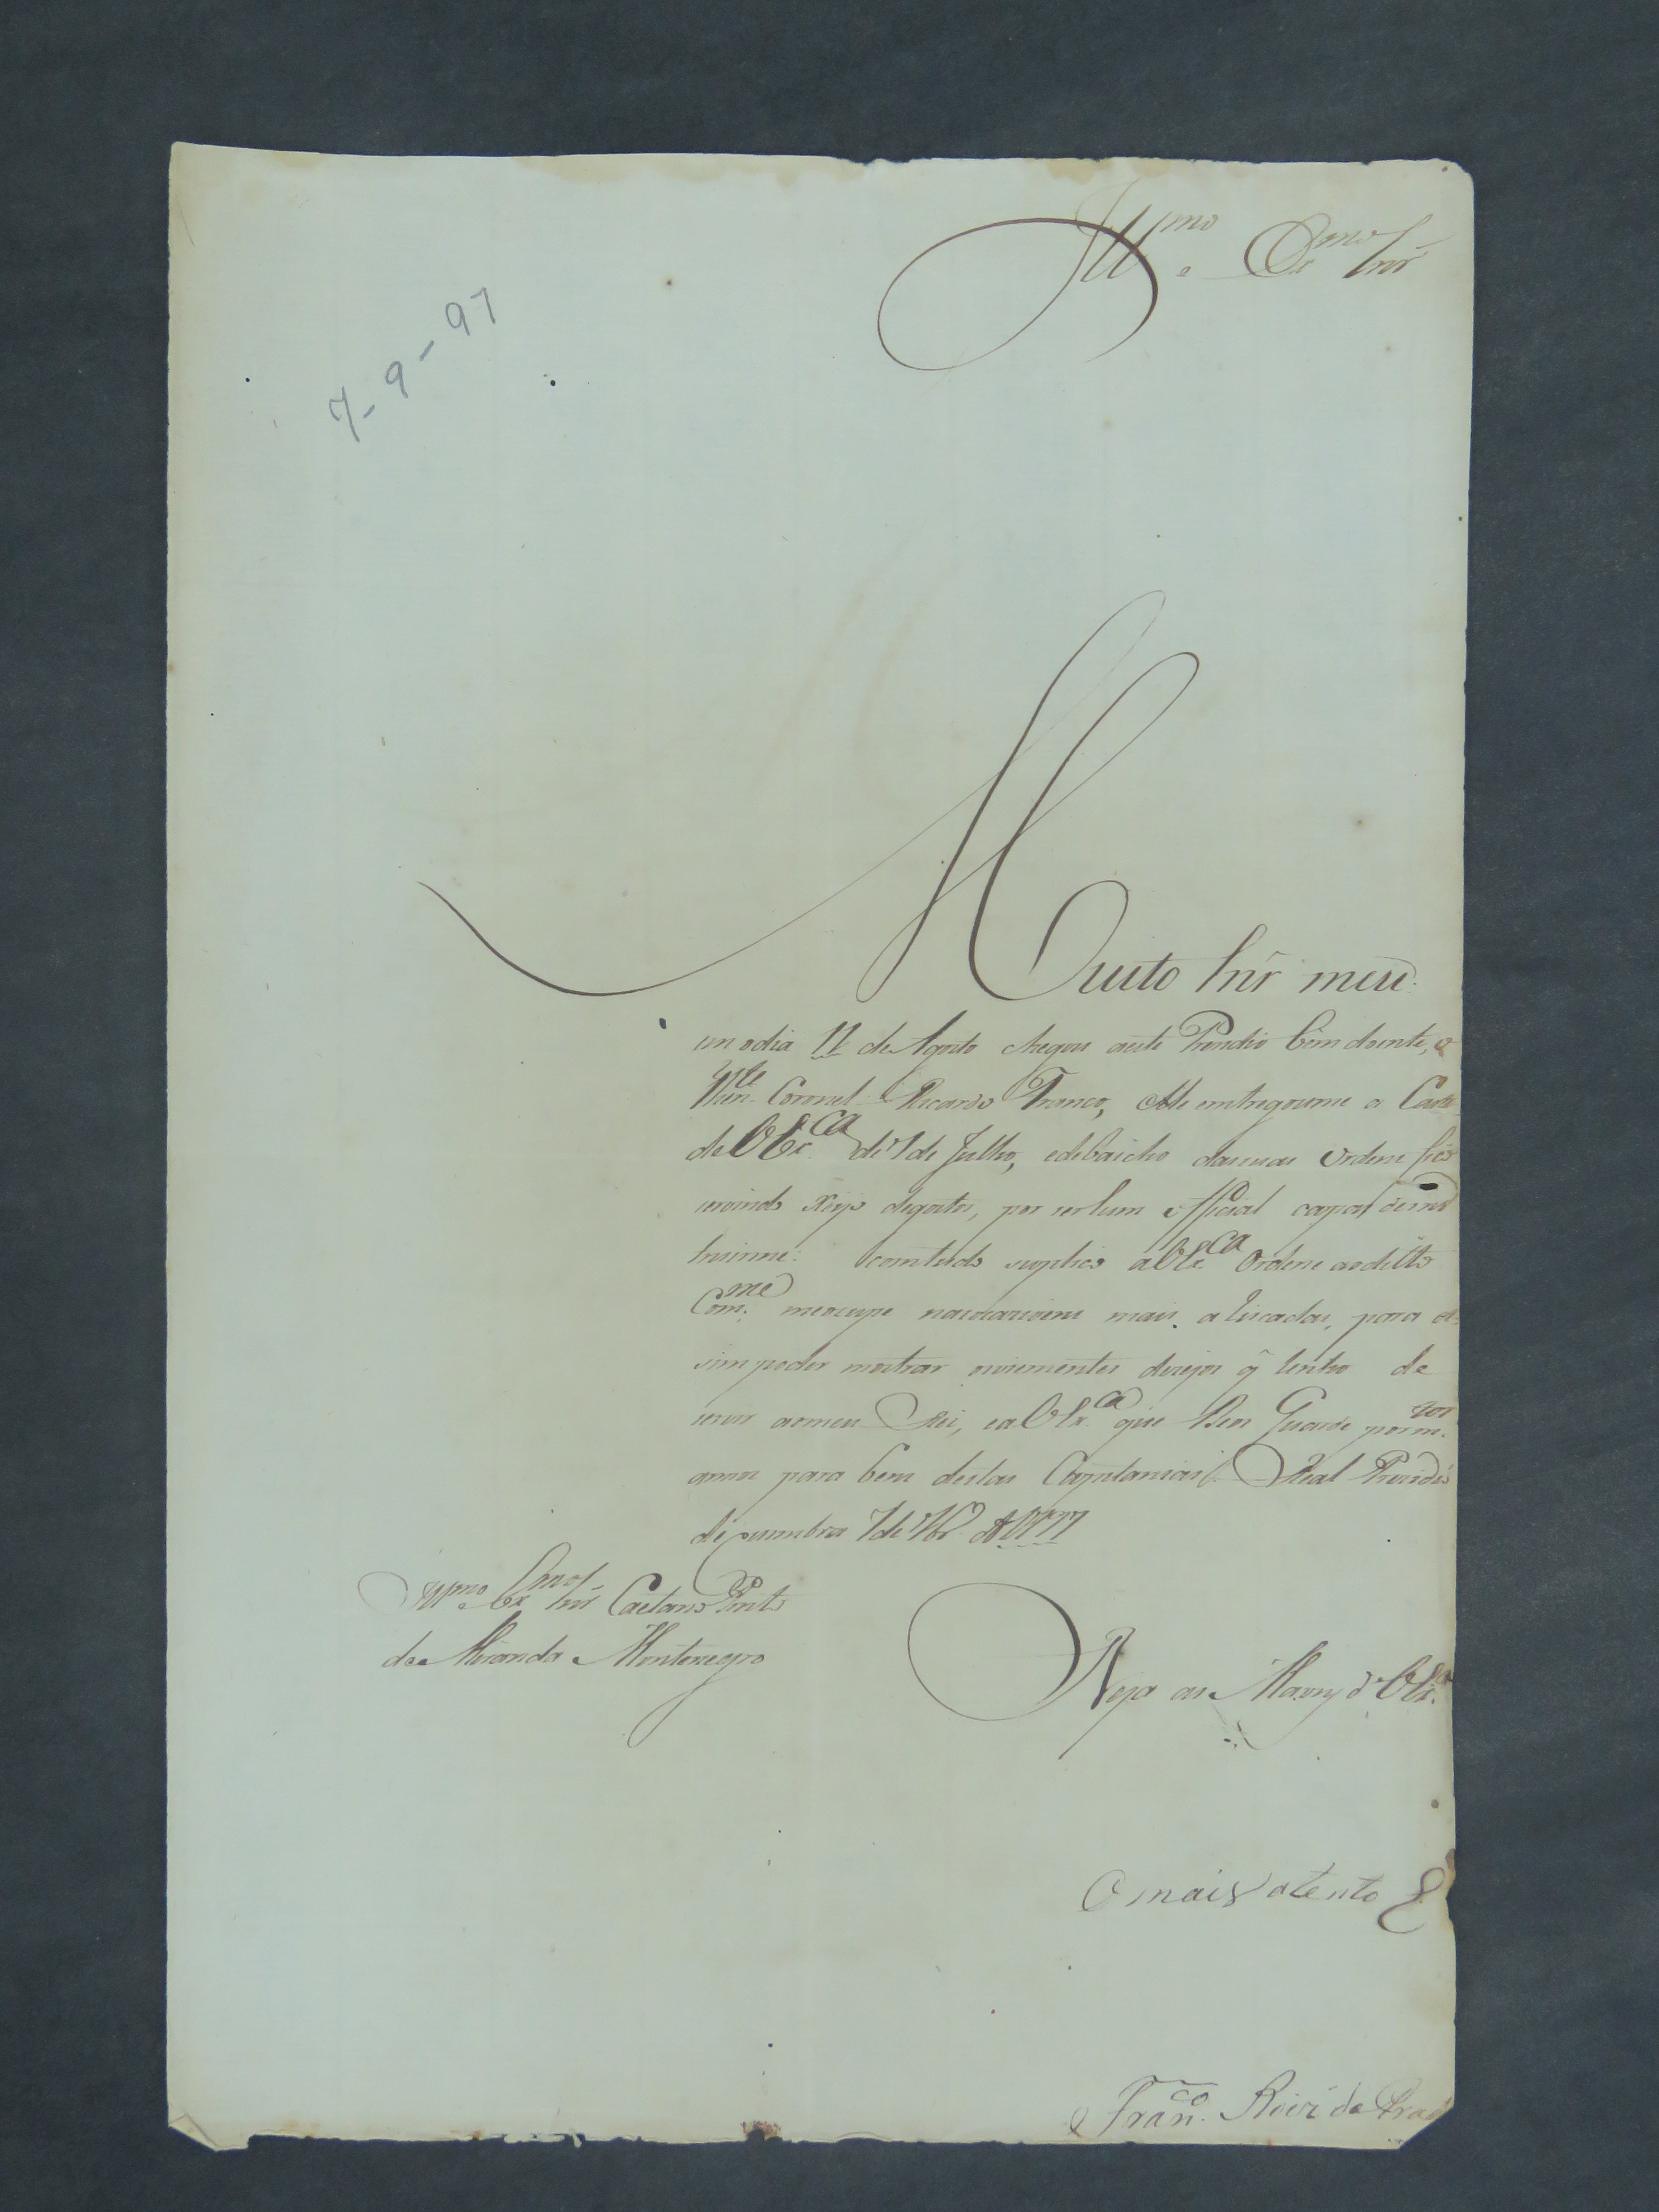 Illmo. e Exmo Snr̃
7-9-97
Muito Snr̃ meu:
em o dia 11 de Agosto chegou aeste Prezidio bem doente, o
Ten.te Coronel Ricardo Franco, elle entregoume a Carta
de V Ex.ca de 7 de Julho, edebaicho dassuas Ordens fico
servindo xeyo degosto, por ser hum official capas de me
comtudo suplico aV Ex.ca Ordene aoditto
Com.me meocupe mais arriscadas, para as=
sim poder mostrar os desejos q̃ tenho de
servir aomeu Rei, eaV Ex.ca que Deos Guarde porm.
annos para bem destas Capitanias. Real Prezidio
de Coimbra 7 de 7br.o de 1797
Illmo. e Exmo Snr̃ Caetano Pinto
de Miranda Montenegro
Beja as Maons de V Ex.ca
O mais atento
Fran.co Roiz̃ do Prado